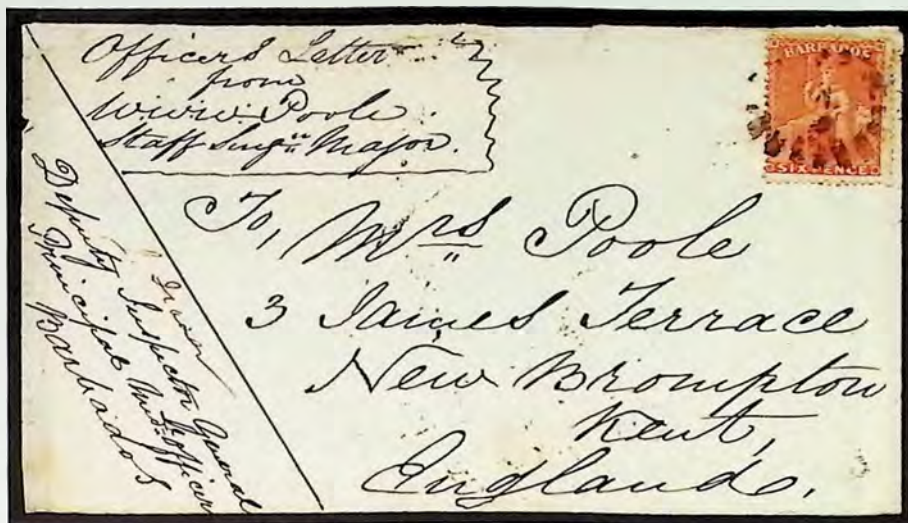 Officers Letter
from
W.W.W. Poole
Staff Surgn Major.
BARBADOS
SIX PENCE
To, Mrs Poole
3 James Terrace
New Brompton
Kent,
England.
Deputy Inspector General
Principal Med. Officer
Barbados